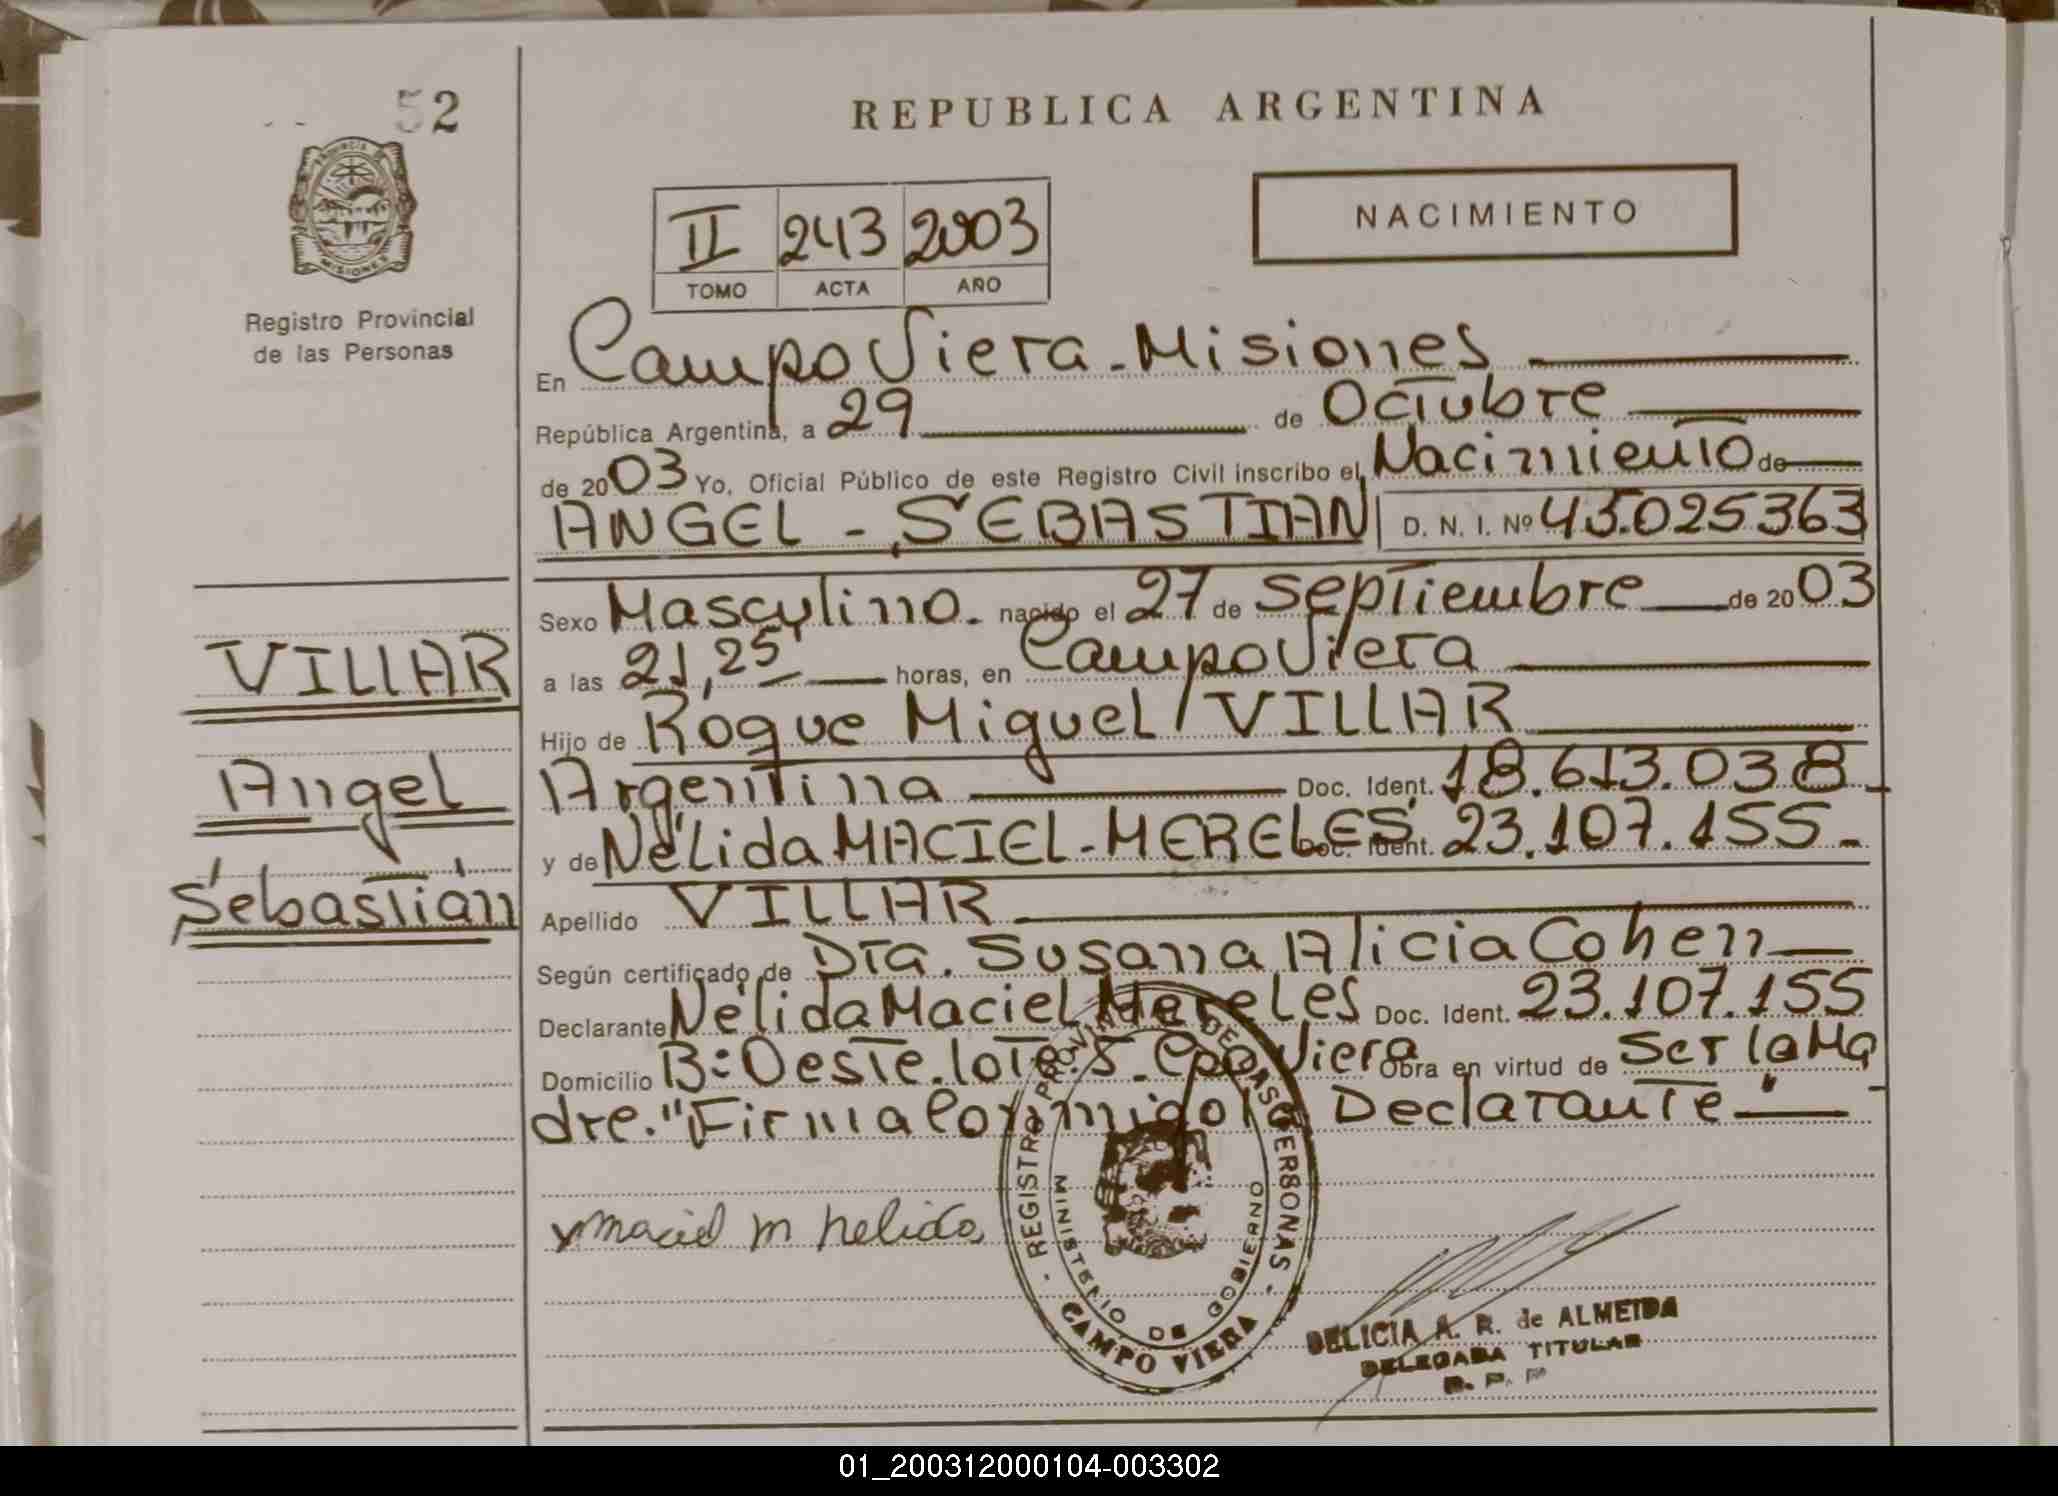 52
REPUBLICA ARGENTINA
PROVINCIA DE MISIONES
Registro Provincial
de las Personas
NACIMIENTO
II 243 2003
TOMO ACTA AÑO
En Campo Viera - Misiones
República Argentina, a 29 de Octubre
de 2003 Yo, Oficial Público de este Registro Civil inscribo el Nacimiento de
ANGEL - SEBASTIAN D. N. I. Nº 45.025363
Sexo Masculino. nacido el 27 de septiembre de 2003
VILLAR
a las 21,25 horas, en Campo Viera
Hijo de Roque Miguel VILLAR
Angel
Argentina Doc. Ident. 18.613.038 -
y de Nélida MACIEL - MERELES Doc. Ident. 23.107.155 -
Sebastián
Apellido VILLAR
Según certificado de Dra. Susana Alicia Cohen
Declarante Nélida Maciel Mereles Doc. Ident. 23.107.155
Domicilio B: Oeste. lote. 5 - Cpo Viera Obra en virtud de Ser la Ma
dre. "Firma Conmigo la Declarante"
x maciel m nelida
REGISTRO PROVINCIAL DE LAS PERSONAS
MINISTERIO DE GOBIERNO
CAMPO VIERA
DELICIA A. R. de ALMEIDA
DELEGADA TITULAR
R. P. P
01_200312000104-003302